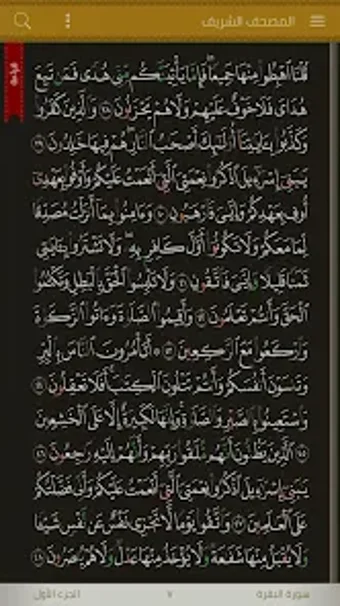 المصحف الشريف
قراءة
قُلْنَا ٱهْبِطُوا۟ مِنْهَا جَمِيعًا ۖ فَإِمَّا يَأْتِيَنَّكُم مِّنِّى هُدًى فَمَن تَبِعَ
هُدَاىَ فَلَا خَوْفٌ عَلَيْهِمْ وَلَا هُمْ يَحْزَنُونَ ٣٨ وَٱلَّذِينَ كَفَرُوا۟
وَكَذَّبُوا۟ بِـَٔايَـٰتِنَآ أُو۟لَـٰٓئِكَ أَصْحَـٰبُ ٱلنَّارِ ۖ هُمْ فِيهَا خَـٰلِدُونَ ٣٩
يَـٰبَنِىٓ إِسْرَٰٓءِيلَ ٱذْكُرُوا۟ نِعْمَتِىَ ٱلَّتِىٓ أَنْعَمْتُ عَلَيْكُمْ وَأَوْفُوا۟ بِعَهْدِىٓ
أُوفِ بِعَهْدِكُمْ وَإِيَّـٰىَ فَٱرْهَبُونِ ٤٠ وَءَامِنُوا۟ بِمَآ أَنزَلْتُ مُصَدِّقًا
لِّمَا مَعَكُمْ وَلَا تَكُونُوٓا۟ أَوَّلَ كَافِرٍۭ بِهِۦ ۖ وَلَا تَشْتَرُوا۟ بِـَٔايَـٰتِى
ثَمَنًا قَلِيلًا وَإِيَّـٰىَ فَٱتَّقُونِ ٤١ وَلَا تَلْبِسُوا۟ ٱلْحَقَّ بِٱلْبَـٰطِلِ وَتَكْتُمُوا۟
ٱلْحَقَّ وَأَنتُمْ تَعْلَمُونَ ٤٢ وَأَقِيمُوا۟ ٱلصَّلَوٰةَ وَءَاتُوا۟ ٱلزَّكَوٰةَ
وَٱرْكَعُوا۟ مَعَ ٱلرَّٰكِعِينَ ٤٣ أَتَأْمُرُونَ ٱلنَّاسَ بِٱلْبِرِّ
وَتَنسَوْنَ أَنفُسَكُمْ وَأَنتُمْ تَتْلُونَ ٱلْكِتَـٰبَ ۚ أَفَلَا تَعْقِلُونَ ٤٤
وَٱسْتَعِينُوا۟ بِٱلصَّبْرِ وَٱلصَّلَوٰةِ ۚ وَإِنَّهَا لَكَبِيرَةٌ إِلَّا عَلَى ٱلْخَـٰشِعِينَ
٤٥ ٱلَّذِينَ يَظُنُّونَ أَنَّهُم مُّلَـٰقُوا۟ رَبِّهِمْ وَأَنَّهُمْ إِلَيْهِ رَٰجِعُونَ ٤٦
يَـٰبَنِىٓ إِسْرَٰٓءِيلَ ٱذْكُرُوا۟ نِعْمَتِىَ ٱلَّتِىٓ أَنْعَمْتُ عَلَيْكُمْ وَأَنِّى فَضَّلْتُكُمْ
عَلَى ٱلْعَـٰلَمِينَ ٤٧ وَٱتَّقُوا۟ يَوْمًا لَّا تَجْزِى نَفْسٌ عَن نَّفْسٍ شَيْـًٔا
وَلَا يُقْبَلُ مِنْهَا شَفَـٰعَةٌ وَلَا يُؤْخَذُ مِنْهَا عَدْلٌ وَلَا هُمْ يُنصَرُونَ ٤٨
سورة البقرة ٧ الجزء الأول